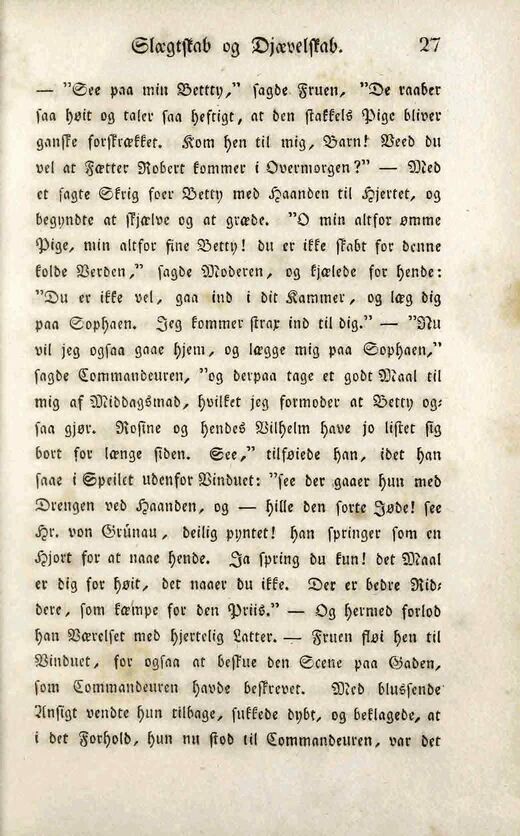 Slægtskab og Djævelskab. 27
— ”See paa min Bettty,” sagde Fruen, ”De raaber
saa høit og taler saa heftigt, at den stakkels Pige bliver
ganske forskrækket. Kom hen til mig, Barn! Veed du
vel at Fætter Robert kommer i Overmorgen?” — Med
et sagte Skrig foer Betty med Haanden til Hjertet, og
begyndte at skjælve og at græde. ”O min altfor ømme
Pige, min altfor fine Betty! du er ikke skabt for denne
kolde Verden,” sagde Moderen, og kjælede for hende:
”Du er ikke vel, gaa ind i dit Kammer, og læg dig
paa Sophaen. Jeg kommer strax ind til dig.” — ”Nu
vil jeg ogsaa gaae hjem, og lægge mig paa Sophaen,”
sagde Commandeuren, ”og derpaa tage et godt Maal til
mig af Middagsmad, hvilket jeg formoder at Betty og-
saa gjør. Rosine og hendes Vilhelm have jo listet sig
bort for længe siden. See,” tilføiede han, idet han
saae i Speilet udenfor Vinduet: ”see der gaaer hun med
Drengen ved Haanden, og — hille den sorte Jøde! see
Hr. von Grünau, deilig pyntet! han springer som en
Hjort for at naae hende. Ja spring du kun! det Maal
er dig for høit, det naaer du ikke. Der er bedre Rid-
dere, som kæmpe for den Priis.” — Og hermed forlod
han Værelset med hjertelig Latter. — Fruen fløi hen til
Vinduet, for ogsaa at beskue den Scene paa Gaden,
som Commandeuren havde beskrevet. Med blussende
Ansigt vendte hun tilbage, sukkede dybt, og beklagede, at
i det Forhold, hun nu stod til Commandeuren, var det